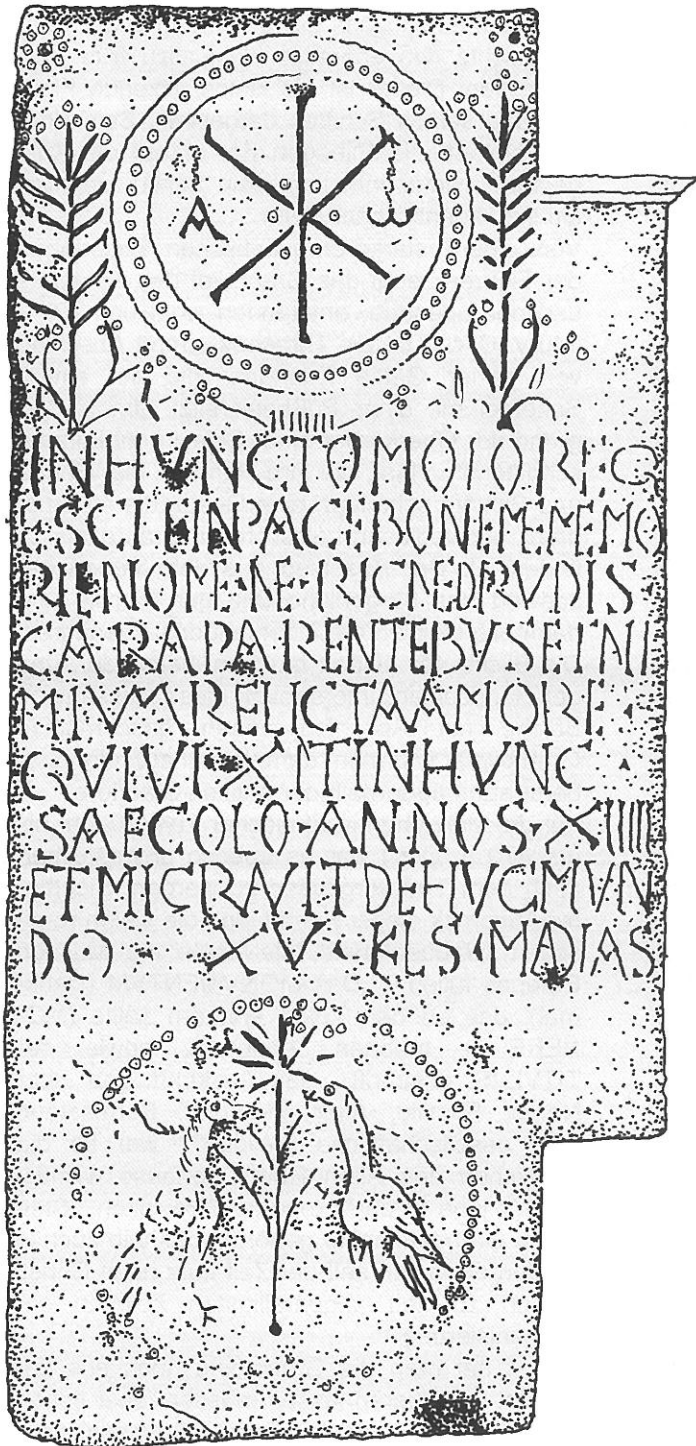 A ω
INHVNCTOMOLOREQ
ESCIEINPACEBONEMEMEMO
RIENOMENERICNEDRVDIS
CARAPARENTEBVSETNI
MIVMRELICTAAMORE
QVIVIXITINHVNC
SAECOLO·ANNOS·XIIII
ETMIGRAVITDEHVCMVN
DO XV·KLS·MADIAS